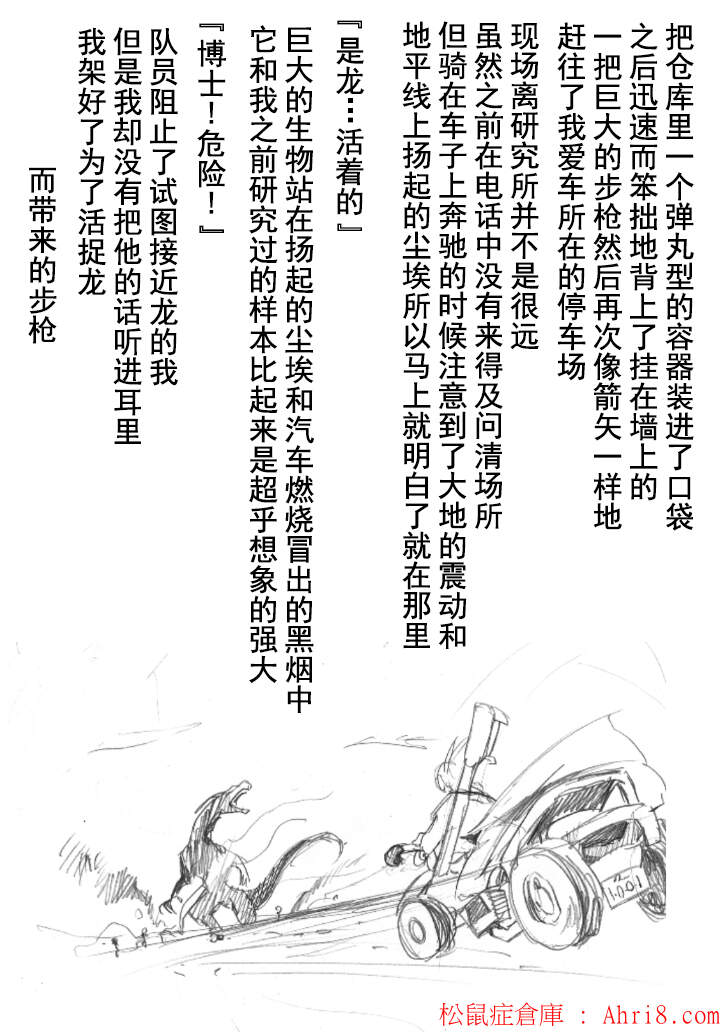 把仓库里一个弹丸型的容器装进了口袋
之后迅速而笨拙地背上了挂在墙上的
一把巨大的步枪然后再次像箭矢一样地
赶往了我爱车所在的停车场
现场离研究所并不是很远
虽然之前在电话中没有来得及问清场所
但骑在车子上奔驰的时候注意到了大地的震动和
地平线上扬起的尘埃所以马上就明白了就在那里
『是龙…活着的』
巨大的生物站在扬起的尘埃和汽车燃烧冒出的黑烟中
它和我之前研究过的样本比起来是超乎想象的强大
『博士!危险!』
队员阻止了试图接近龙的我
但是我却没有把他的话听进耳里
我架好了为了活捉龙
而带来的步枪
1-001
松鼠症倉庫 : Ahri8.com